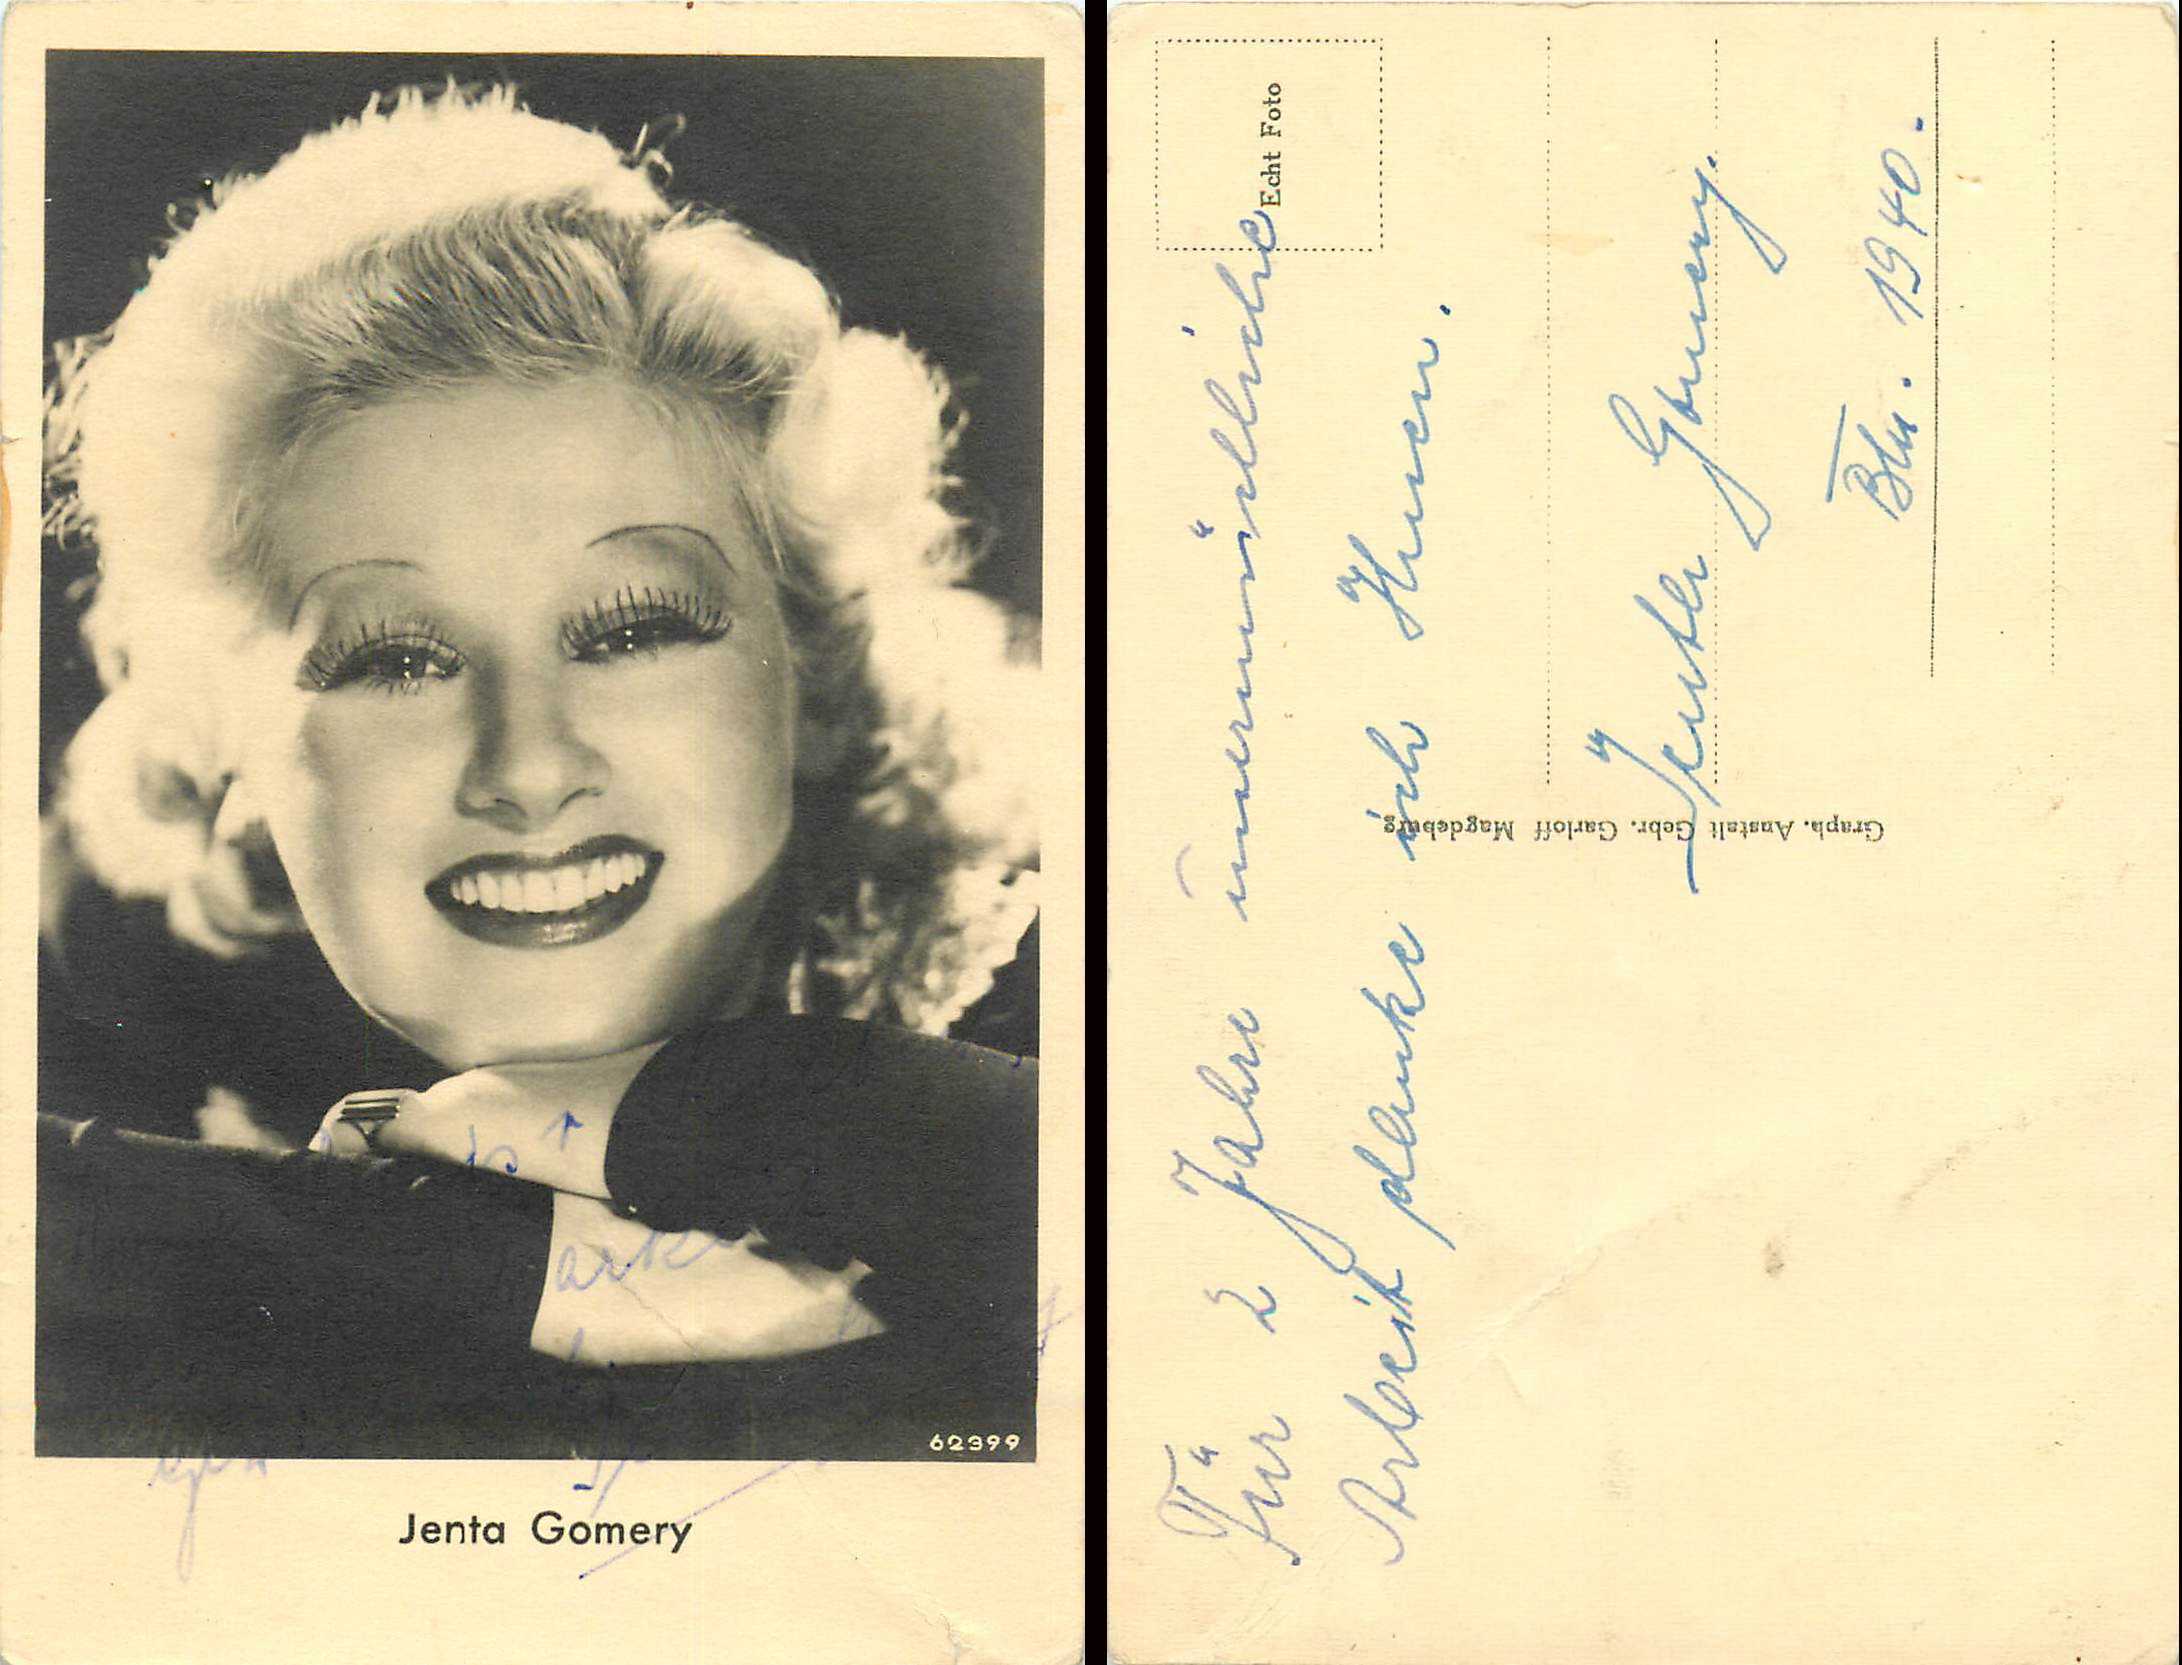 62399
Jenta Gomery
Echt Foto
Für 2 Jahre unermüdliche
Arbeit danke ich Ihnen.
Jenta Gomery.
Bln. 1940.
Graph. Anstalt Gebr. Garloff Magdeburg